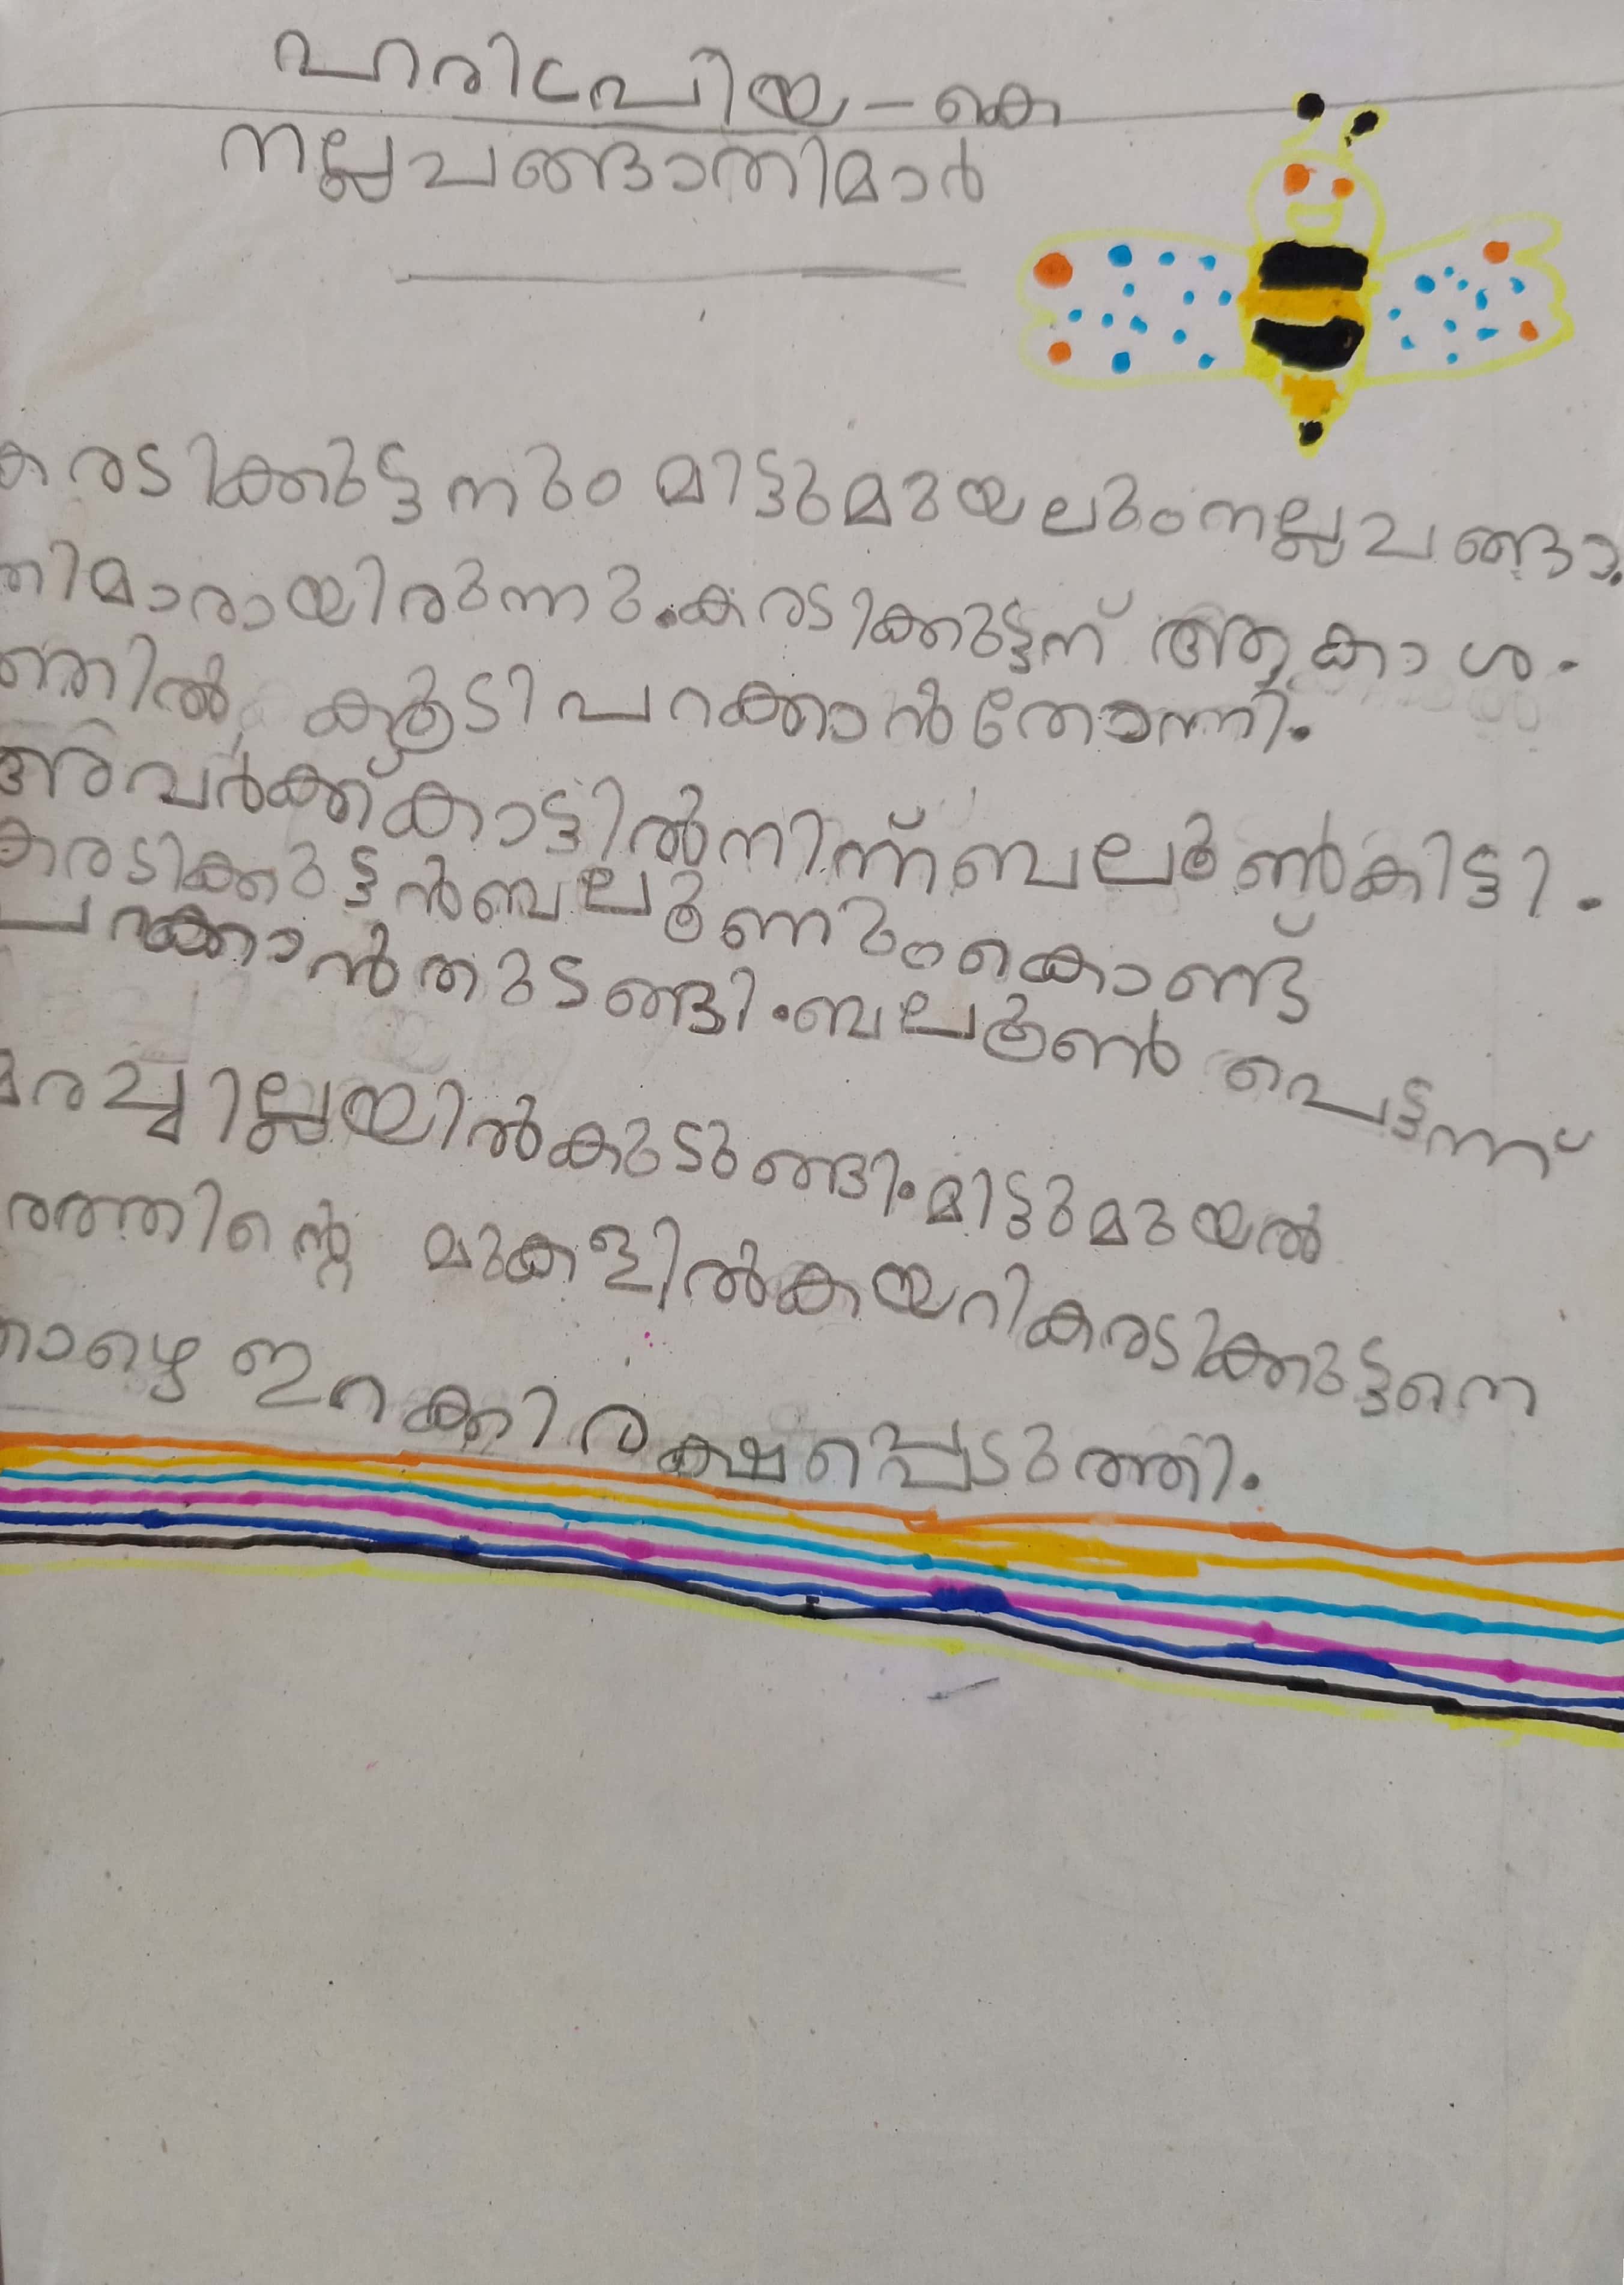 ഹരിപ്രിയ - കെ
നല്ലചങ്ങാതിമാർ
കരടിക്കുട്ടനും മിട്ടുമുയലുംനല്ലചങ്ങാ.
തിമാരായിരുന്നു.കരടിക്കുട്ടന് ആകാശ.
ത്തിൽ കൂടി പറക്കാൻതോന്നി.
അവർക്ക്കാട്ടിൽനിന്ന്ബലൂൺകിട്ടി.
കരടിക്കുട്ടൻബലൂണുംകൊണ്ട്
പറക്കാൻതുടങ്ങി.ബലൂൺ പെട്ടന്ന്
മരച്ചില്ലയിൽകുടുങ്ങി.മിട്ടുമുയൽ
രത്തിന്റെ മുകളിൽകയറികരടിക്കുട്ടനെ
താഴെ ഇറക്കി രക്ഷപ്പെടുത്തി.